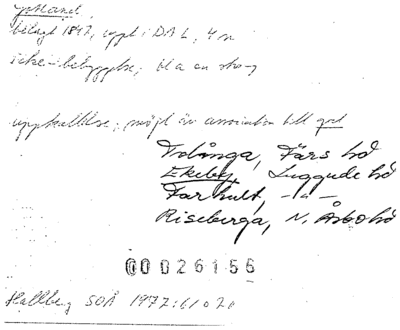 Uppland
belagt 1847, uppt i DAL, 4 n
icke-bebyggelse; bl a en skog
uppkallelse; möjl är association till gat
Tolånga, Färs hd
Ekeby, Luggude hd
Farhult, -"-
Riseberga, N. Åsbo hd
00026156
Hallberg SOÄ 1972:61 o 20